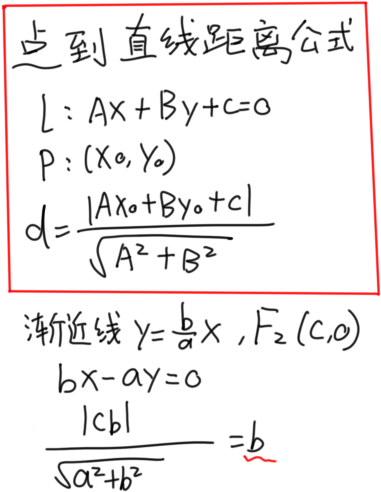 点到直线距离公式
L: Ax+By+c=0
P: (x₀, y₀)
d=|Ax₀+By₀+c|/√(A²+B²)
渐近线 y=b/a x, F₂(c,0)
bx-ay=0
|cb|/√(a²+b²) =b